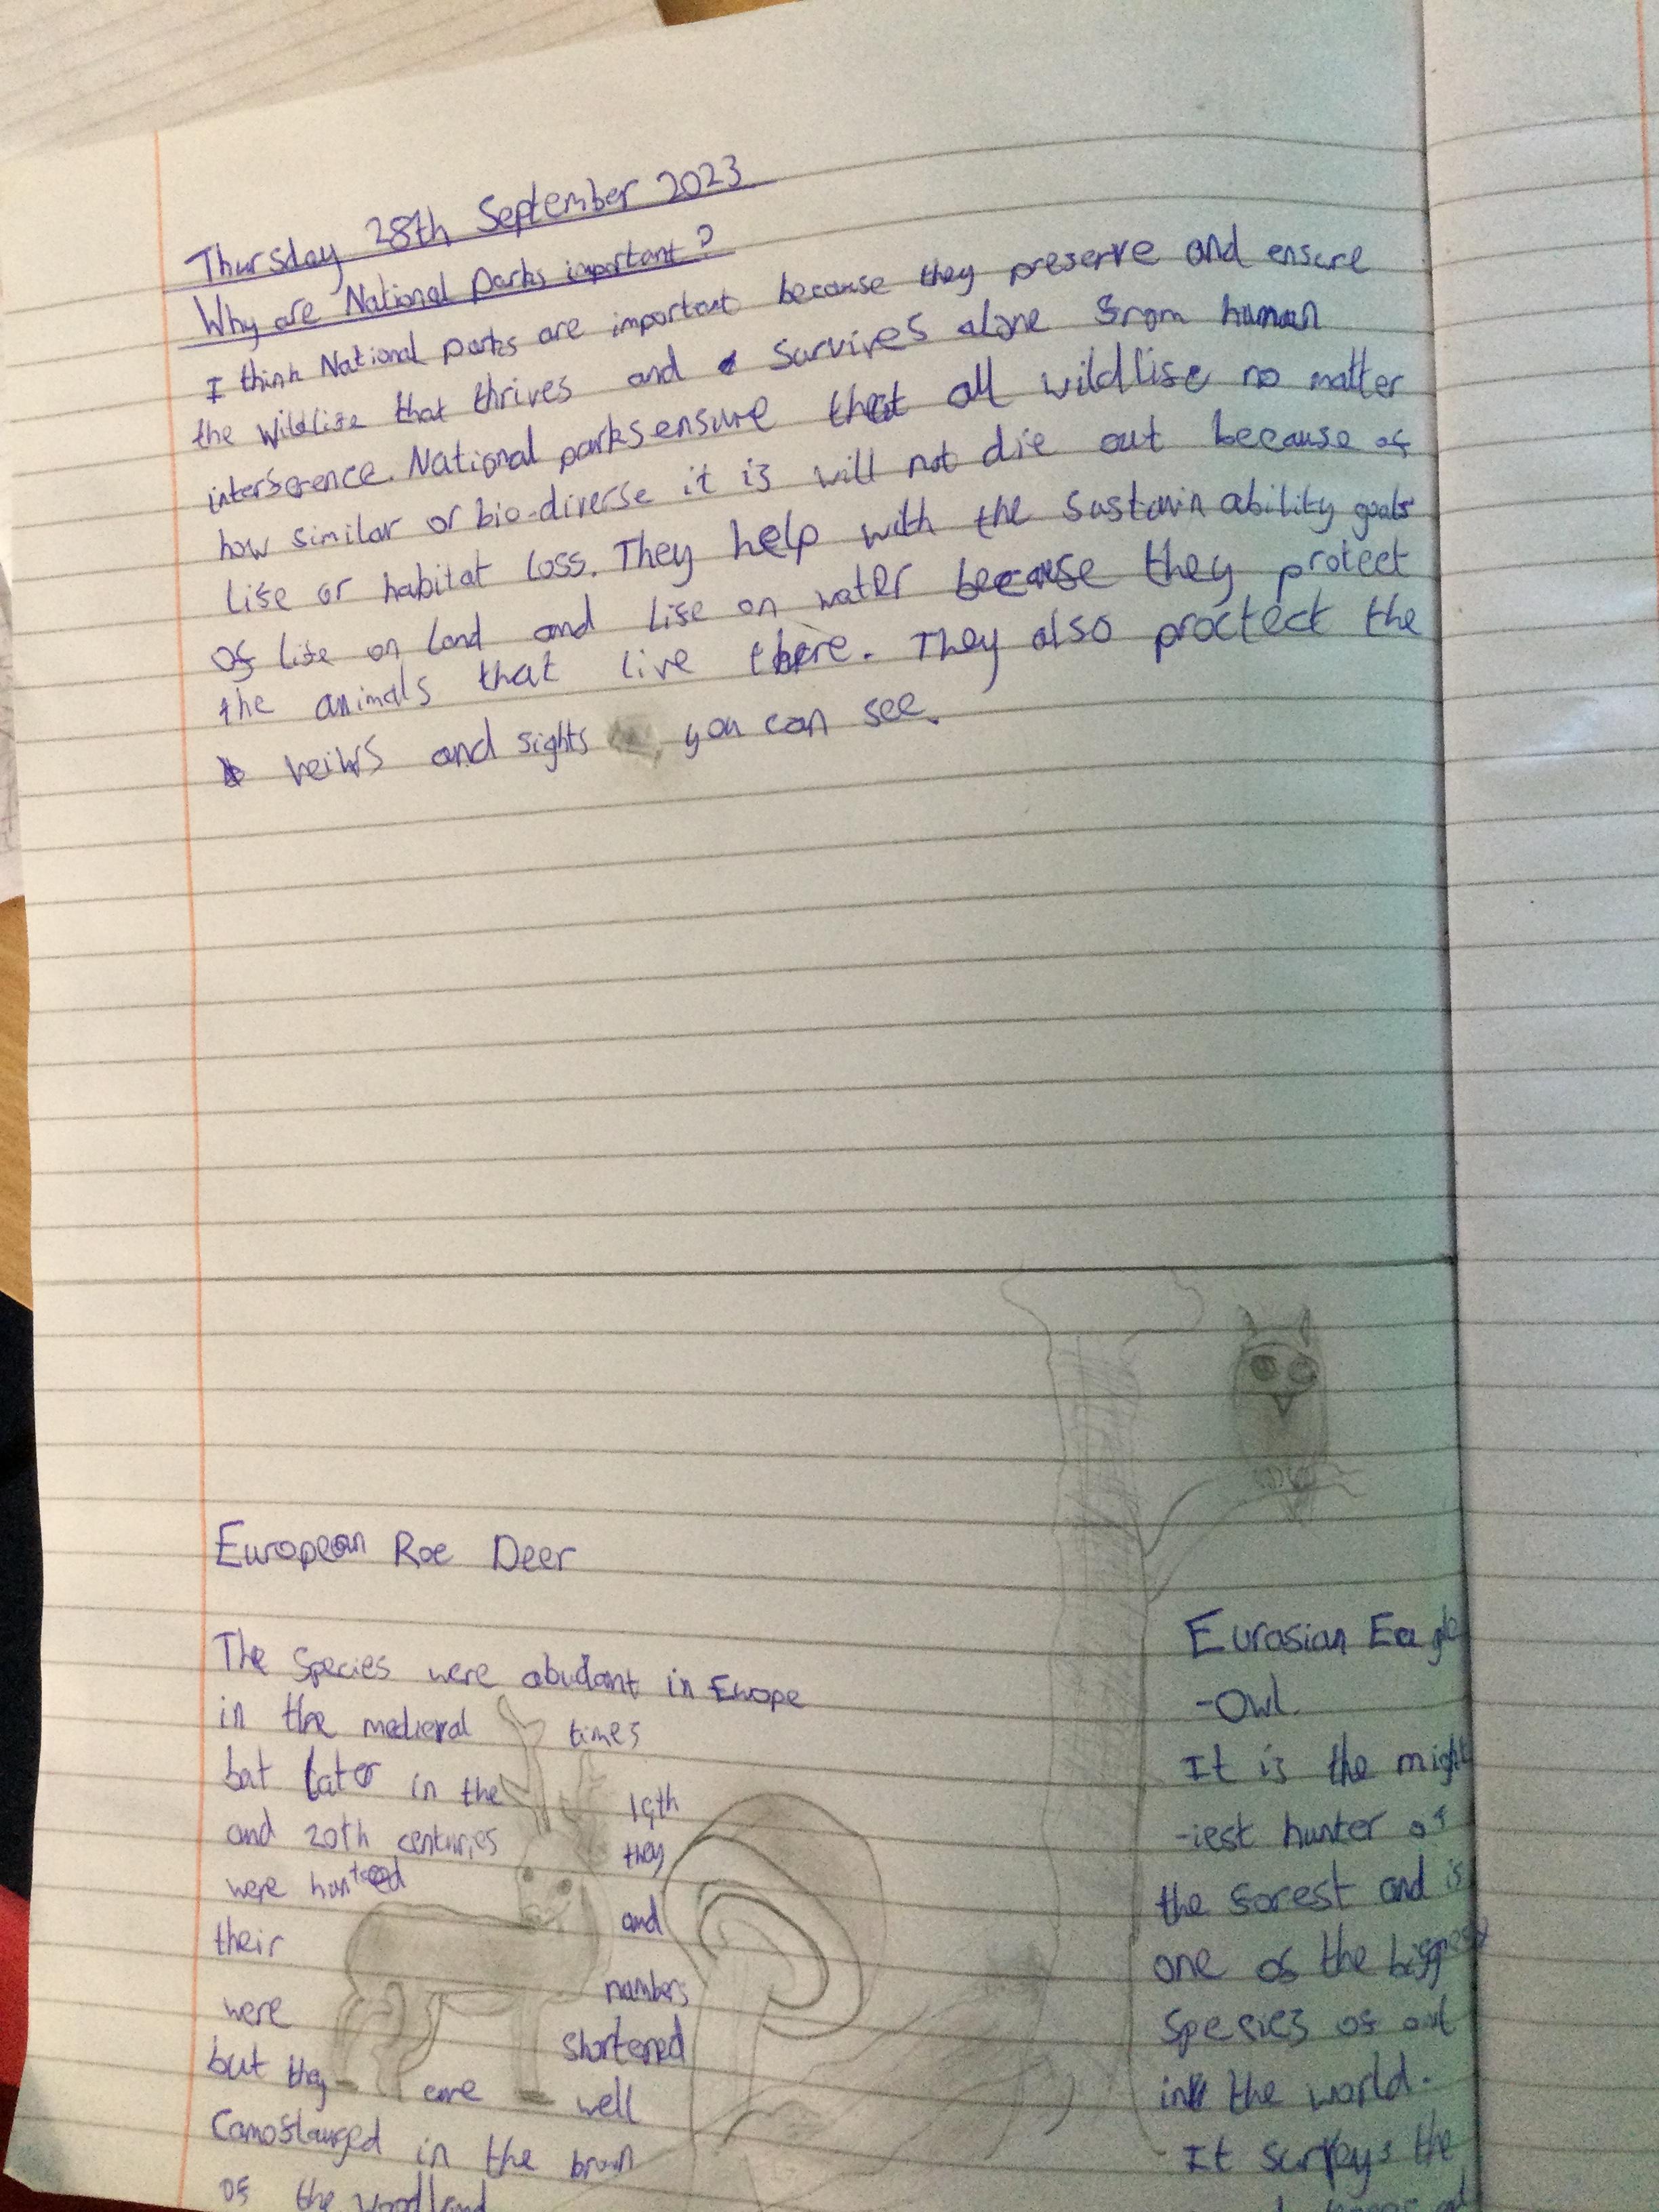 Thursday 28th September 2023
Why are National parks important?
I think National parks are important because they preserve and ensure
the wildlife that thrives and survives alone from human
interference. National parks ensure that all wildlife no matter
how similar or bio-diverse it is will not die out because of
life or habitat loss. They help with the sustainability goals
of life on land and life on water because they protect
the animals that live there. They also proctect the
veiws and sights you can see.
European Roe Deer
The species were abudant in Europe
in the medieval times
but later in the 19th
and 20th centuries they
were hunted and
their numbers
were shortened
but they are well
Camoflauged in the brown
of the woodland
Eurasian Eagle
-Owl.
It is the might
-iest hunter of
the forest and is
one of the biggest
species of owl
in the world.
It surveys the